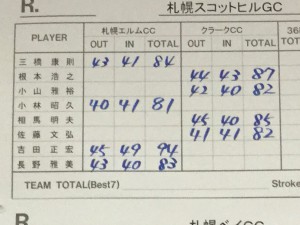 R. 札幌スコットヒルGC
PLAYER 札幌エルムCC クラークCC 36
OUT IN TOTAL OUT IN TOTAL
三橋康則 43 41 84
根本浩之 44 43 87
小山雅裕 42 40 82
小林昭久 40 41 81
相馬明夫 45 40 85
佐藤文弘 41 41 82
吉田正宏 45 49 94
長野雅美 43 40 83
TEAM TOTAL(Best7) Stroke
R. 札幌ベイGC